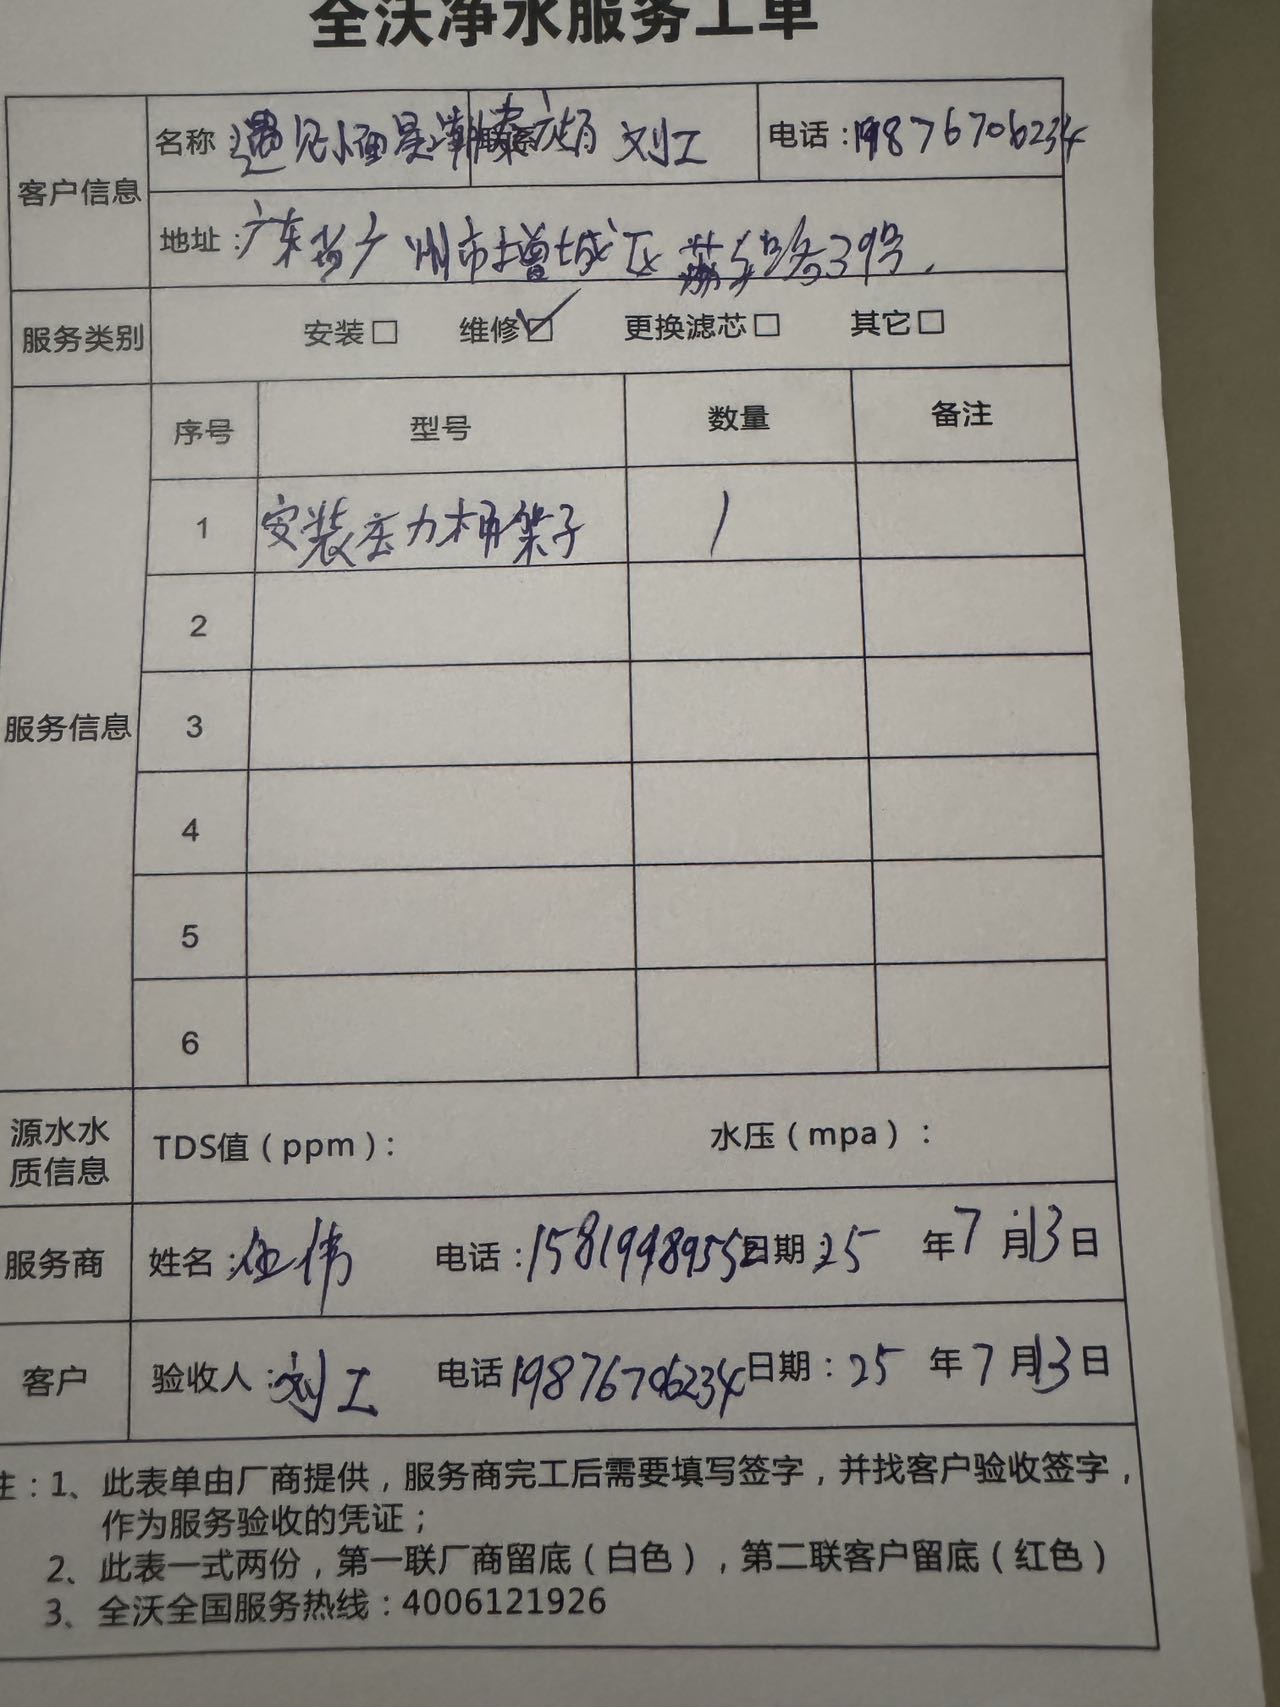 全沃净水服务工单
客户信息
名称：遇见小面 刘工 电话：19876706234
地址：广东省广州市增城区荔 39号
服务类别 安装□ 维修☑ 更换滤芯□ 其它□
服务信息
序号 型号 数量 备注
1 安装压力桶架子 1
2
3
4
5
6
源水水质信息 TDS值（ppm）： 水压（mpa）：
服务商 姓名：伍伟 电话：15819989552 日期：25 年 7 月 13 日
客户 验收人：刘工 电话 19876706234 日期：25 年 7 月 13 日
注：1、此表单由厂商提供，服务商完工后需要填写签字，并找客户验收签字，
作为服务验收的凭证；
2、此表一式两份，第一联厂商留底（白色），第二联客户留底（红色）
3、全沃全国服务热线：4006121926